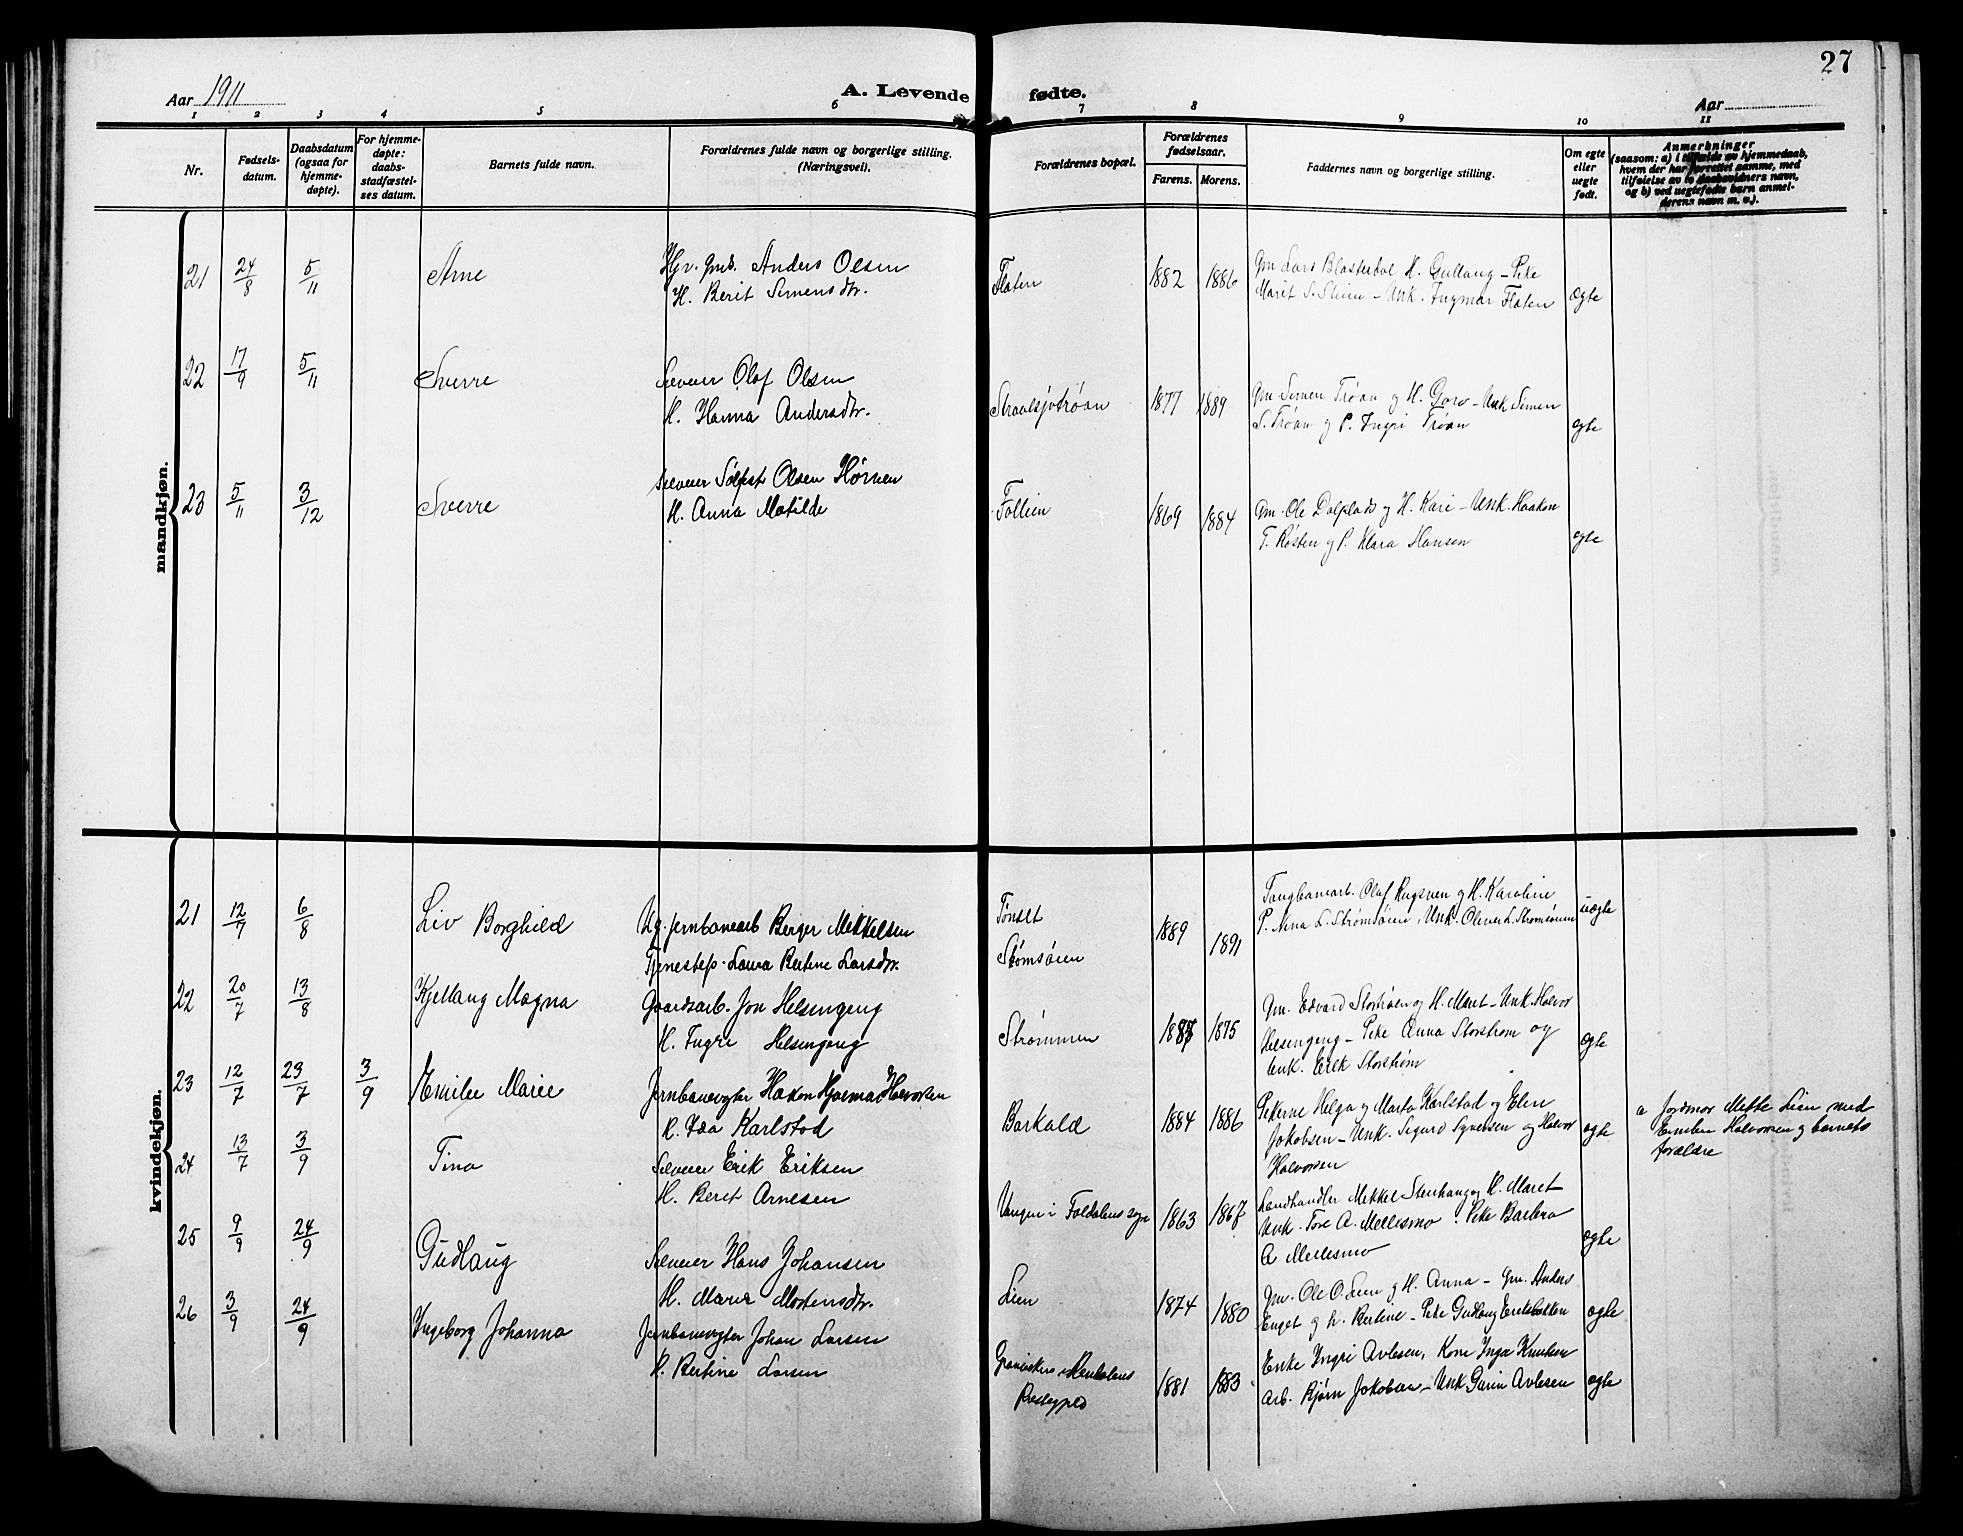 27
Aar 1911
A. Levende fødte.
Aar
1 2 3 4 5 6 7 8 9 10 11
Nr.
Fødsels-
datum.
Daabsdatum
(ogsaa for
hjemme-
døpte).
For hjemme-
døpte:
daabs-
stadfæstel-
ses datum.
Barnets fulde navn.
Forældrenes fulde navn og borgerlige stilling.
(Næringsvei).
Forældrenes bopæl.
Forældrenes
fødselsaar.
Farens. Morens.
Faddernes navn og borgerlige stilling.
Om egte
eller
uegte
født.
Anmerkninger
(saasom: a) i tilfælde av hjemmedaab,
hvem der har forrettet samme, med
tilføielse av to daabsvidners navn,
og b) ved uegtefødte barn anmel-
derens navn m. v.).
mandkjøn.
21 24/8 5/11 Arne Gmd. Anders Olsen
H. Berit Simensdtr.
Flaten 1882 1886 Gm Lars H. Gullaug - Pike
Marit S. Stien - Unk. Ingmar Flaten ægte
22 17/9 5/11 Sverre Selveier Olaf Olsen
H. Hanna Andersdtr.
Straalsjøtrøan 1877 1889 Gm Simen Trøan og H. Goro - Unk Simen
S. Trøan og P. Ingri Trøan egte
23 5/11 3/12 Sverre Selveier Olsen
H. Anna Matilde
Follien 1869 1884 Gm. Ole Dalplads og H. Kari - Unk. Haakon
T. Røsten og P. Klara Hansen egte
kvindekjøn.
21 12/7 6/8 Liv Borghild Ug. jernbanearb Berger Mikkelsen
Laura Bertine Larsdtr.
Tønset
Strømsøien
1889 1891 Olaf og H. Karoline
P. Nina L. Strømsøien, Unk. Oliver L. Strømsøien uægte
22 20/7 13/8 Kjellaug Magna Gaardsarb. Jon Helsingeng
H. Ingri Helsingeng
Strømmen 1875 Gm. Edvard Storstrøm og H. Maret - Unk. Halvor
Helsingeng - Pike Anna Storstrøm og
Unk. Erik Storstrøm ægte
23 12/7 23/7 3/9 Emilie Marie Jernbanevogter Hakon Hjalmar Halvorsen
H. Ida Karlstad
Barkald 1884 1886 Pikerne Helga og Marta Karlstad og Elen
Jakobsen - Unk. Sigurd Syversen og Halvor
Halvorsen ægte
a Jordmor Mette Lien med
Emilie Halvorsen og barnets
forældre
24 13/7 3/9 Tina Selveier Erik Eriksen
H. Berit Arnesen
Vangen i Foldalens sogn 1863 1867 Landhandler Mikkel Steihaug og H. Maret
Unk. Tore A. Mellesmo. Pike Barbro
A Mellesmo ægte
25 9/9 24/9 Gudlaug Selveier Hans Johansen
H. Marie Mortensdtr.
Lien 1874 1880 Gm. Ole O. Lien og H. Anna - Gm. Anders
Enget og h. Bertine - Pike Gudlaug ægte
26 3/9 24/9 Ingeborg Johanna Jernbanevogter Johan Larsen
H. Bertine Larsen
Rendalens
Prestegjeld
1881 1883 Enke Ingri Avlesen, Kone Inga Knutsen
Arb. Bjørn Jakobsen - Unk Garin Avlesen ægte